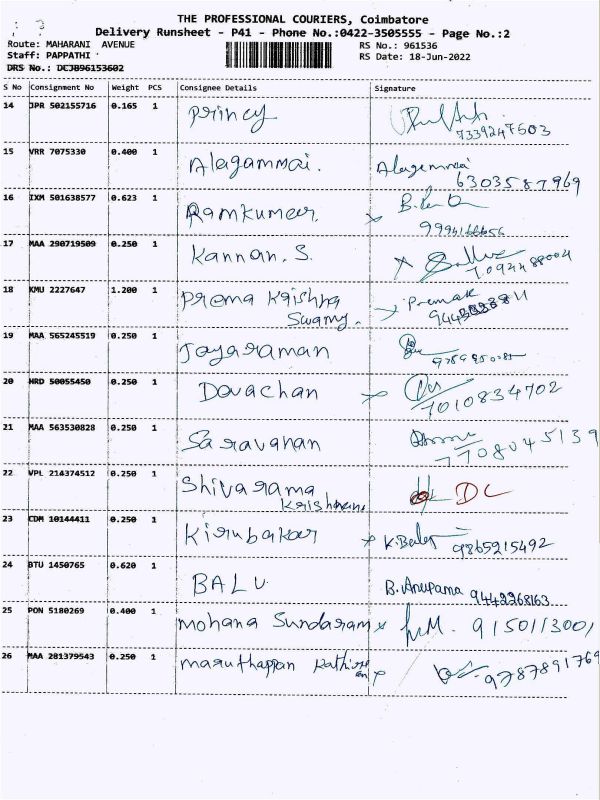 3
THE PROFESSIONAL COURIERS, Coimbatore
Delivery Runsheet - P41 - Phone No.:0422-3505555 - Page No.:2
Route: MAHARANI AVENUE RS No.: 961536
Staff: PAPPATHI RS Date: 18-Jun-2022
DRS No.: DCJB96153602
S No Consignment No Weight PCS Consignee Details Signature
14 JPR 502155716 0.165 1 Princy
7339247503
15 VRR 7075330 0.400 1 Alagammai. Alagammai
6303587969
16 IXM 501638577 0.623 1 Ramkumar.
17 MAA 290719509 0.250 1 Kannan. S.
7094488004
18 KMU 2227647 1.200 1 Prema Krishna Premak
Swamy.
19 MAA 565245519 0.250 1 Jayaraman
20 HRD 50055450 0.250 1 Devachan
7010834702
21 MAA 563530828 0.250 1 Saravanan
7708045139
22 VPL 214374512 0.250 1 Shivarama DC
Krishnan
23 CDM 10144411 0.250 1 Kirubakar 9865215492
24 BTU 1450765 0.620 1 BALU B. Anupama 9442268163
25 PON 5180269 0.400 1 Mohana Sundaram 9150113001
26 MAA 281379543 0.250 1 Maruthappan
9787891769